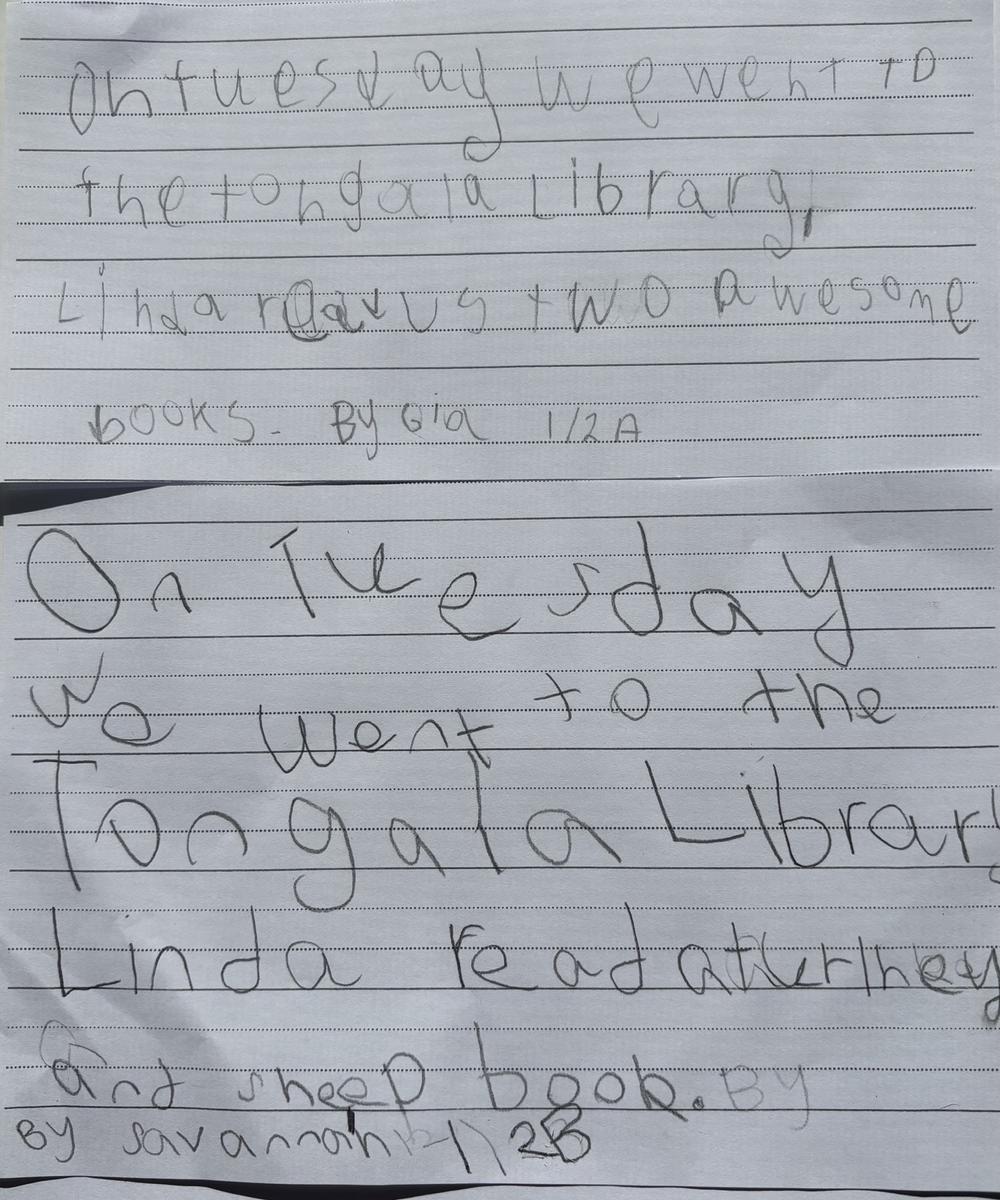 On tuesday we went to
the tongala Library,
Linda read us two awesome
books. By Gia 1/2A
On Tuesday
We went to the
Tongala Library
Linda read a
and sheep book. By
By savannah 1/2B